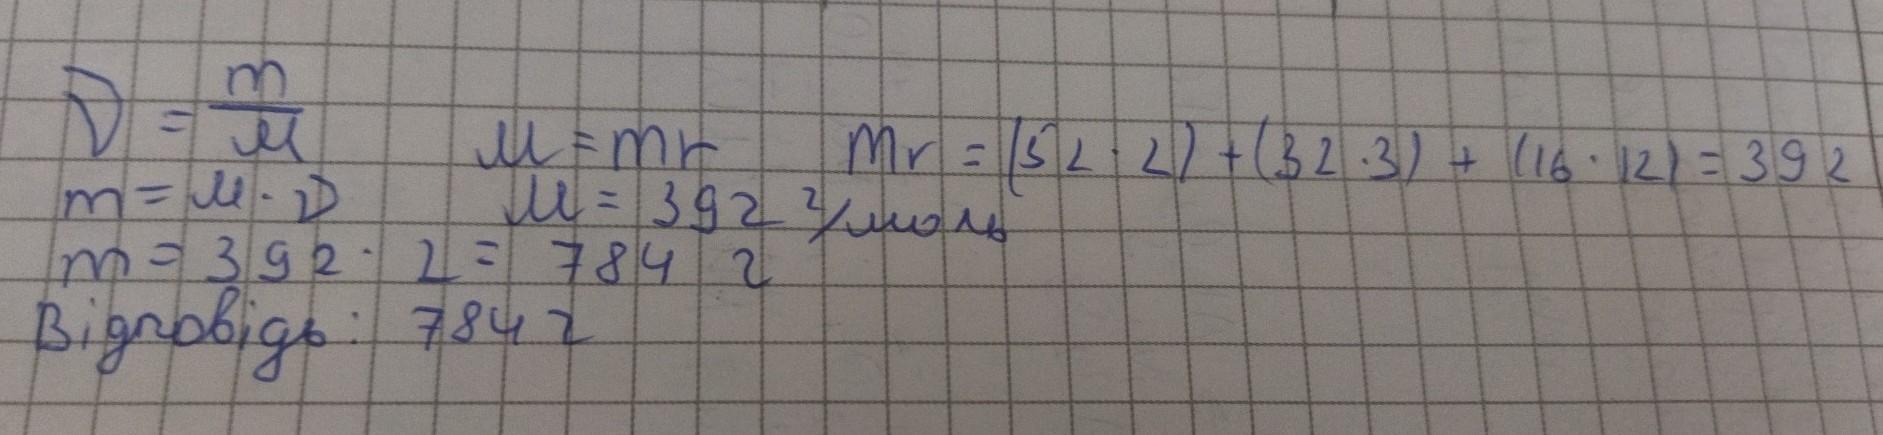 ν = m/μ μ = mr Mr = (52 · 2) + (32 · 3) + (16 · 12) = 392
m = μ · ν μ = 392 г/моль
m = 392 · 2 = 784 г
Відповідь: 784 г